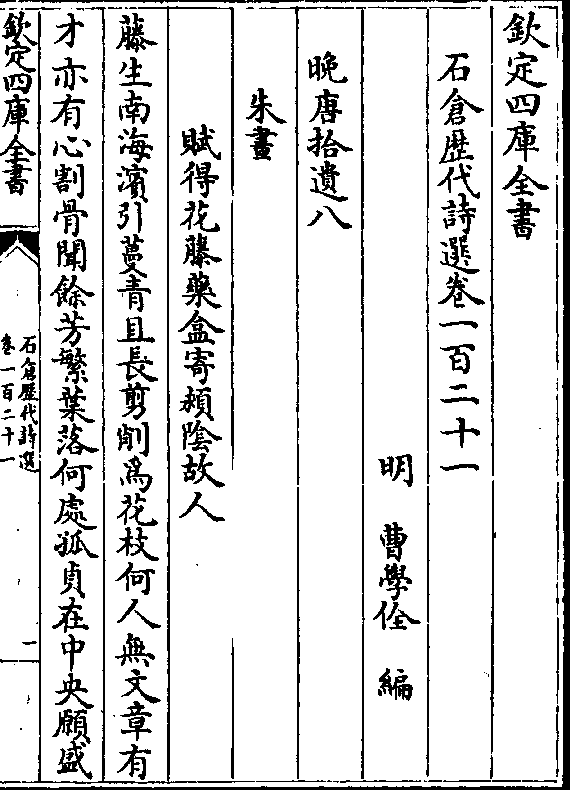 欽定四庫全書
石倉歴代詩選卷一百二十一
明 曹學佺 編
晚唐拾遺八
朱晝
賦得花藤藥盒寄頴陰故人
藤生南海濵引蔓青且長剪削爲花枝何人無文章有
才亦有心割骨聞餘芳繁葉落何處孤貞在中央願盛
欽定四庫全書
石倉歴代詩選
卷一百二十一
一